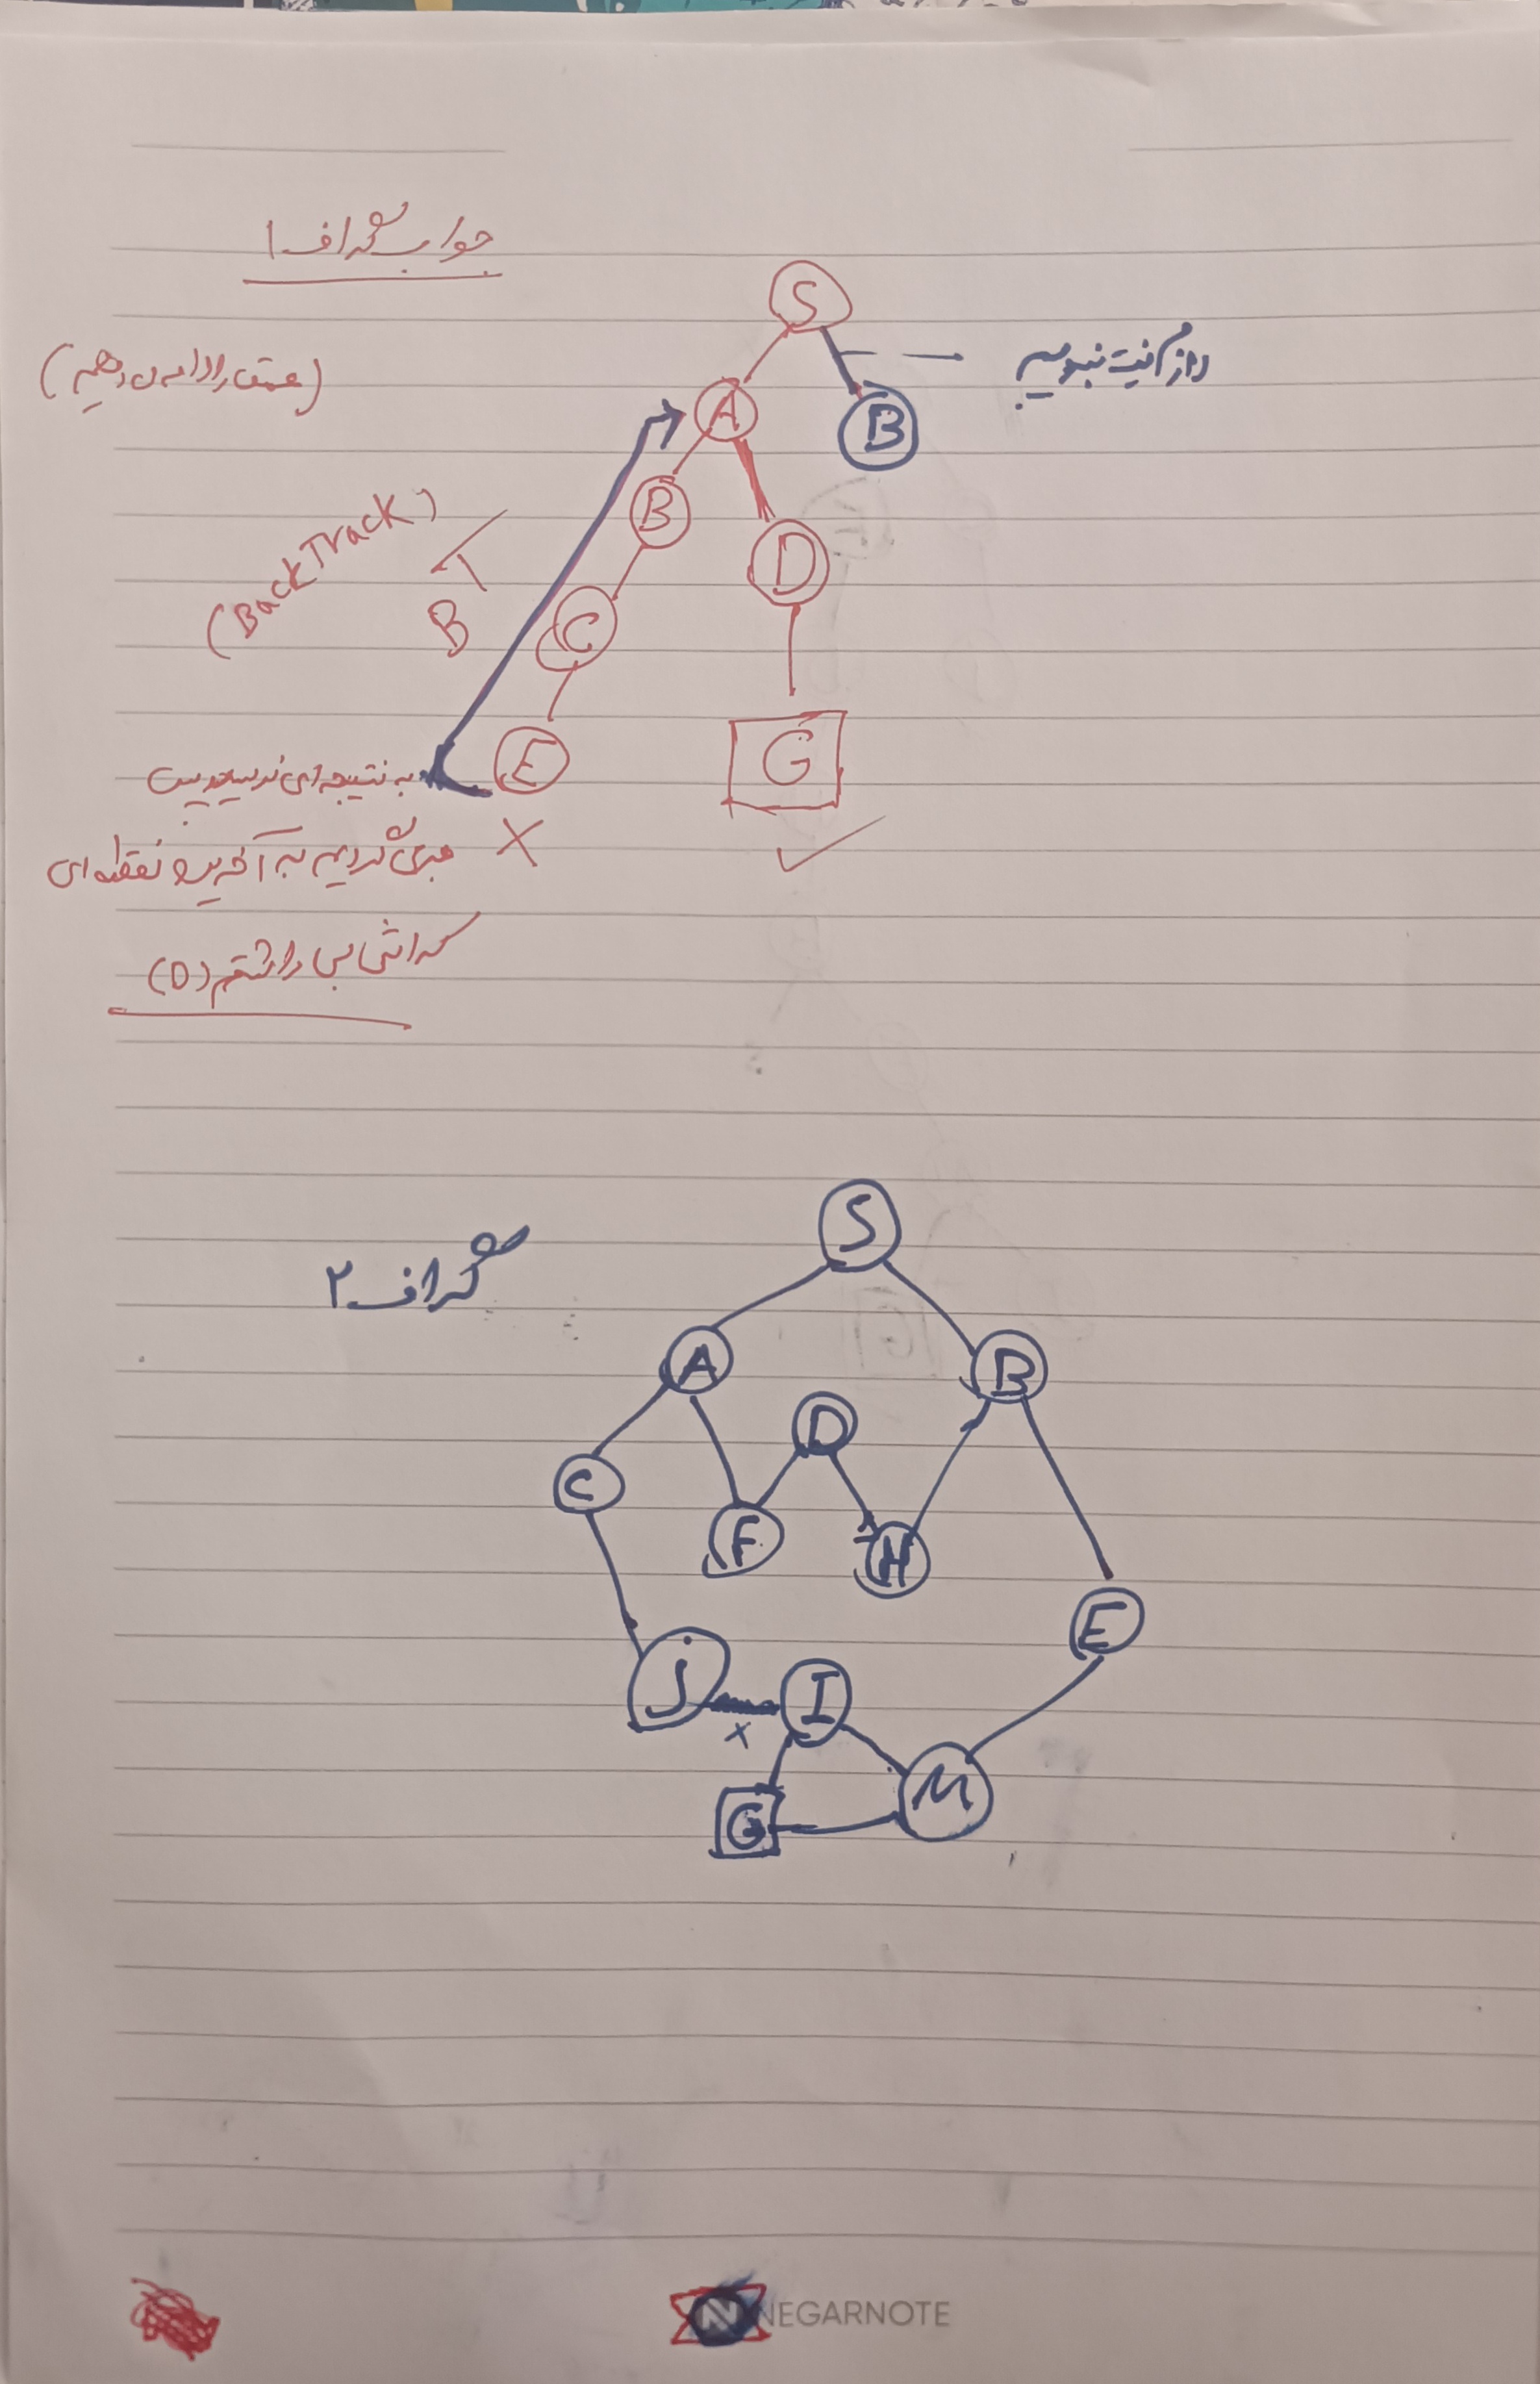 جواب گراف ۱
S
(عمق را ادامه می‌دهیم)
لازم نیست بنویسیم
A
B
(BackTrack)
B
D
B T
C
به نتیجه ای نرسیدیم پس
E
G
برمی گردیم به آخرین نقطه ای
که انشعاب داشتیم (D)
گراف ۲
S
A
B
D
C
F
H
E
J
I
x
M
G
NEGARNOTE